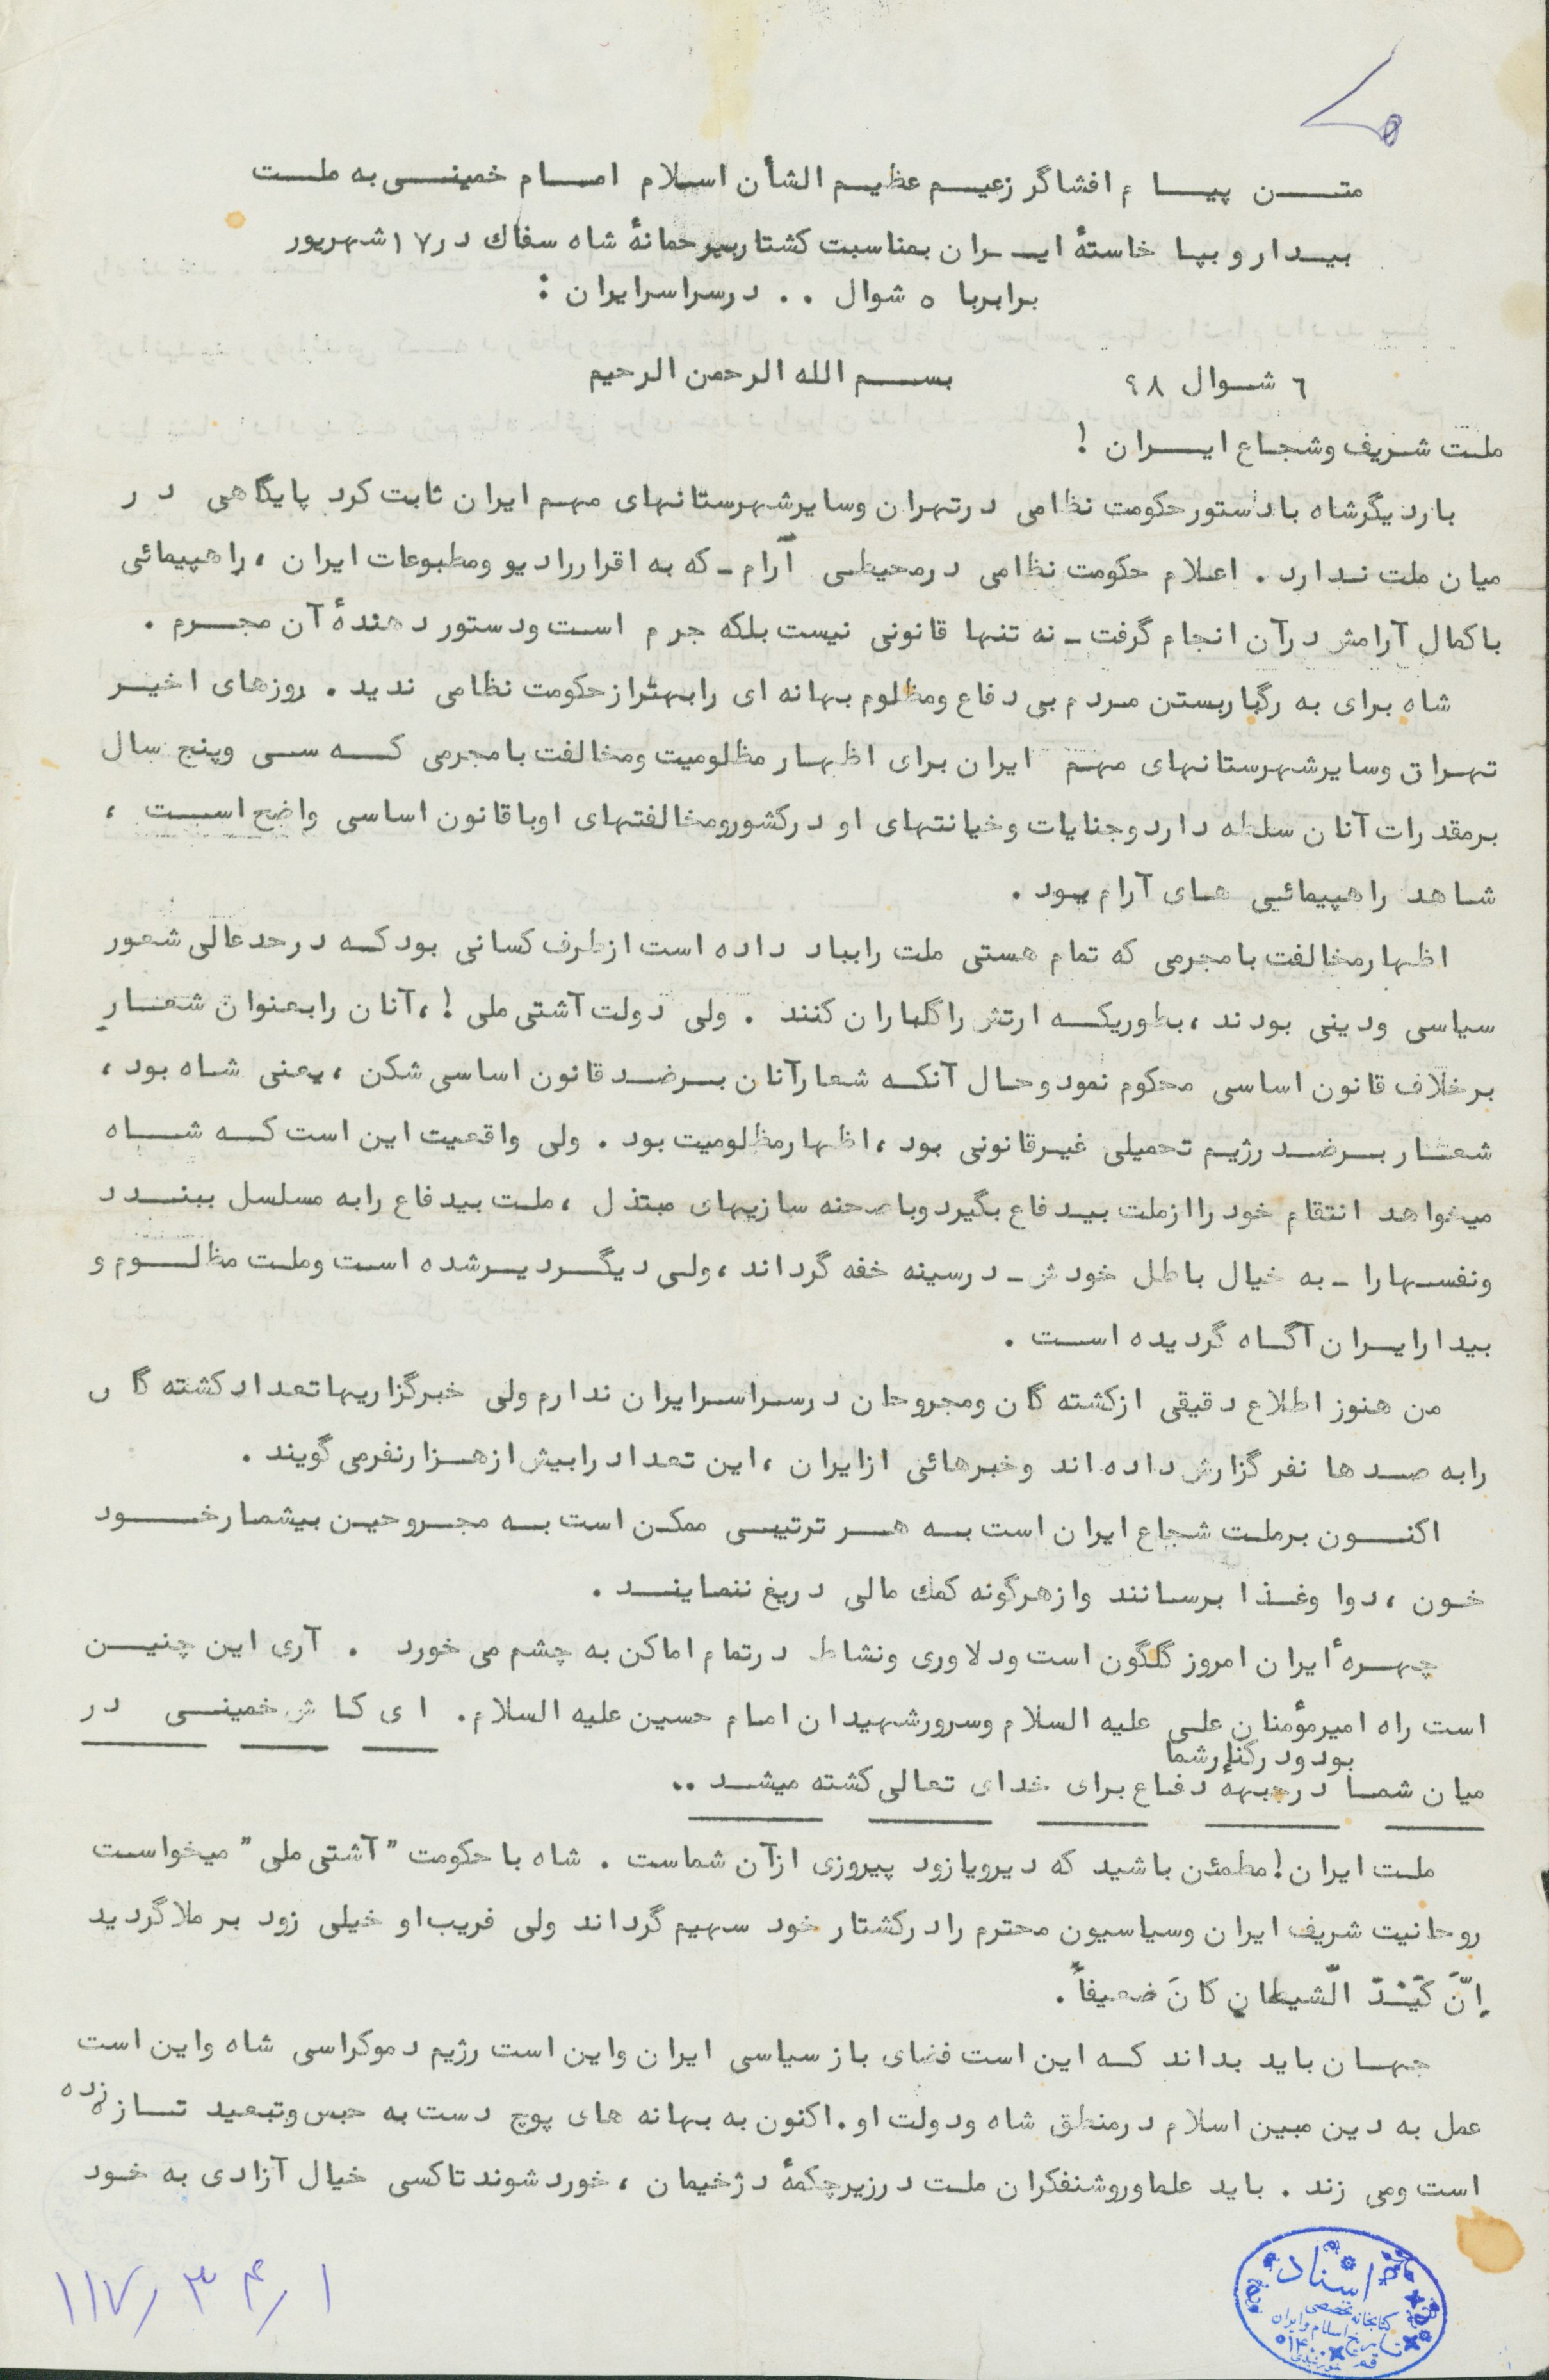 متن پیام افشاگر زعیم عظیم الشأن اسلام امام خمینی به ملت
بیدار و بپا خاستهٔ ایران بمناسبت کشتار بیرحمانهٔ شاه سفاك در ۱۷ شهریور
برابر با ٥ شوال .. در سراسر ایران :
٦ شوال ٩٨
بسم الله الرحمن الرحیم
ملت شریف و شجاع ایران !
بار دیگر شاه با دستور حکومت نظامی در تهران و سایر شهرستانهای مهم ایران ثابت کرد پایگاهی در
میان ملت ندارد . اعلام حکومت نظامی در محیطی آرام ـ که به اقرار رادیو و مطبوعات ایران ، راهپیمائی
با کمال آرامش در آن انجام گرفت ـ نه تنها قانونی نیست بلکه جرم است و دستور دهندهٔ آن مجرم .
شاه برای به رگبار بستن مردم بی دفاع و مظلوم بهانه ای را بهتر از حکومت نظامی ندید . روزهای اخیر
تهران و سایر شهرستانهای مهم ایران برای اظهار مظلومیت و مخالفت با مجرمی که سی و پنج سال
بر مقدرات آنان سلطه دارد و جنایات و خیانتهای او در کشور و مخالفتهای او با قانون اساسی واضح است ،
شاهد راهپیمائی های آرام بود .
اظهار مخالفت با مجرمی که تمام هستی ملت را بباد داده است از طرف کسانی بود که در حد عالی شعور
سیاسی و دینی بودند ، بطوریکه ارتش را گلباران کنند . ولی دولت آشتی ملی ! ، آنان را بعنوان شعار
بر خلاف قانون اساسی محکوم نمود و حال آنکه شعار آنان بر ضد قانون اساسی شکن ، یعنی شاه بود ،
شعار بر ضد رژیم تحمیلی غیر قانونی بود ، اظهار مظلومیت بود . ولی واقعیت این است که شاه
میخواهد انتقام خود را از ملت بیدفاع بگیرد و با صحنه سازیهای مبتذل ، ملت بیدفاع را به مسلسل ببندد
و نفسها را ـ به خیال باطل خودش ـ در سینه خفه گرداند ، ولی دیگر دیر شده است و ملت مظلوم و
بیدار ایران آگاه گردیده است .
من هنوز اطلاع دقیقی از کشته گان و مجروحان در سراسر ایران ندارم ولی خبرگزاریها تعداد کشته گان
را به صدها نفر گزارش داده اند و خبرهائی از ایران ، این تعداد را بیش از هزار نفر می گویند .
اکنون بر ملت شجاع ایران است به هر ترتیبی ممکن است به مجروحین بیشمار خود
خون ، دوا و غذا برسانند و از هرگونه کمك مالی دریغ ننمایند .
چهرهٔ ایران امروز گلگون است و دلاوری و نشاط در تمام اماکن به چشم می خورد . آری این چنین
است راه امیر مؤمنان علی علیه السلام و سرور شهیدان امام حسین علیه السلام . ای کاش خمینی در
میان شما بود و در کنار شما در جبههٔ دفاع برای خدای تعالی کشته میشد ..
ملت ایران ! مطمئن باشید که دیر و یا زود پیروزی از آن شماست . شاه با حکومت "آشتی ملی" میخواست
روحانیت شریف ایران و سیاسیون محترم را در کشتار خود سهیم گرداند ولی فریب او خیلی زود بر ملا گردید
إنَّ کَیْدَ الشّیطانِ کانَ ضعیفاً .
جهان باید بداند که این است فضای باز سیاسی ایران و این است رژیم دموکراسی شاه و این است
عمل به دین مبین اسلام در منطق شاه و دولت او . اکنون به بهانه های پوچ دست به حبس و تبعید تازه زده
است و می زند . باید علما و روشنفکران ملت در زیر چکمهٔ دژخیمان ، خورد شوند تا کسی خیال آزادی به خود
۱۱۷/۳۴/۱
اسناد
کتابخانه تخصصی
تاریخ اسلام و ایران
قم